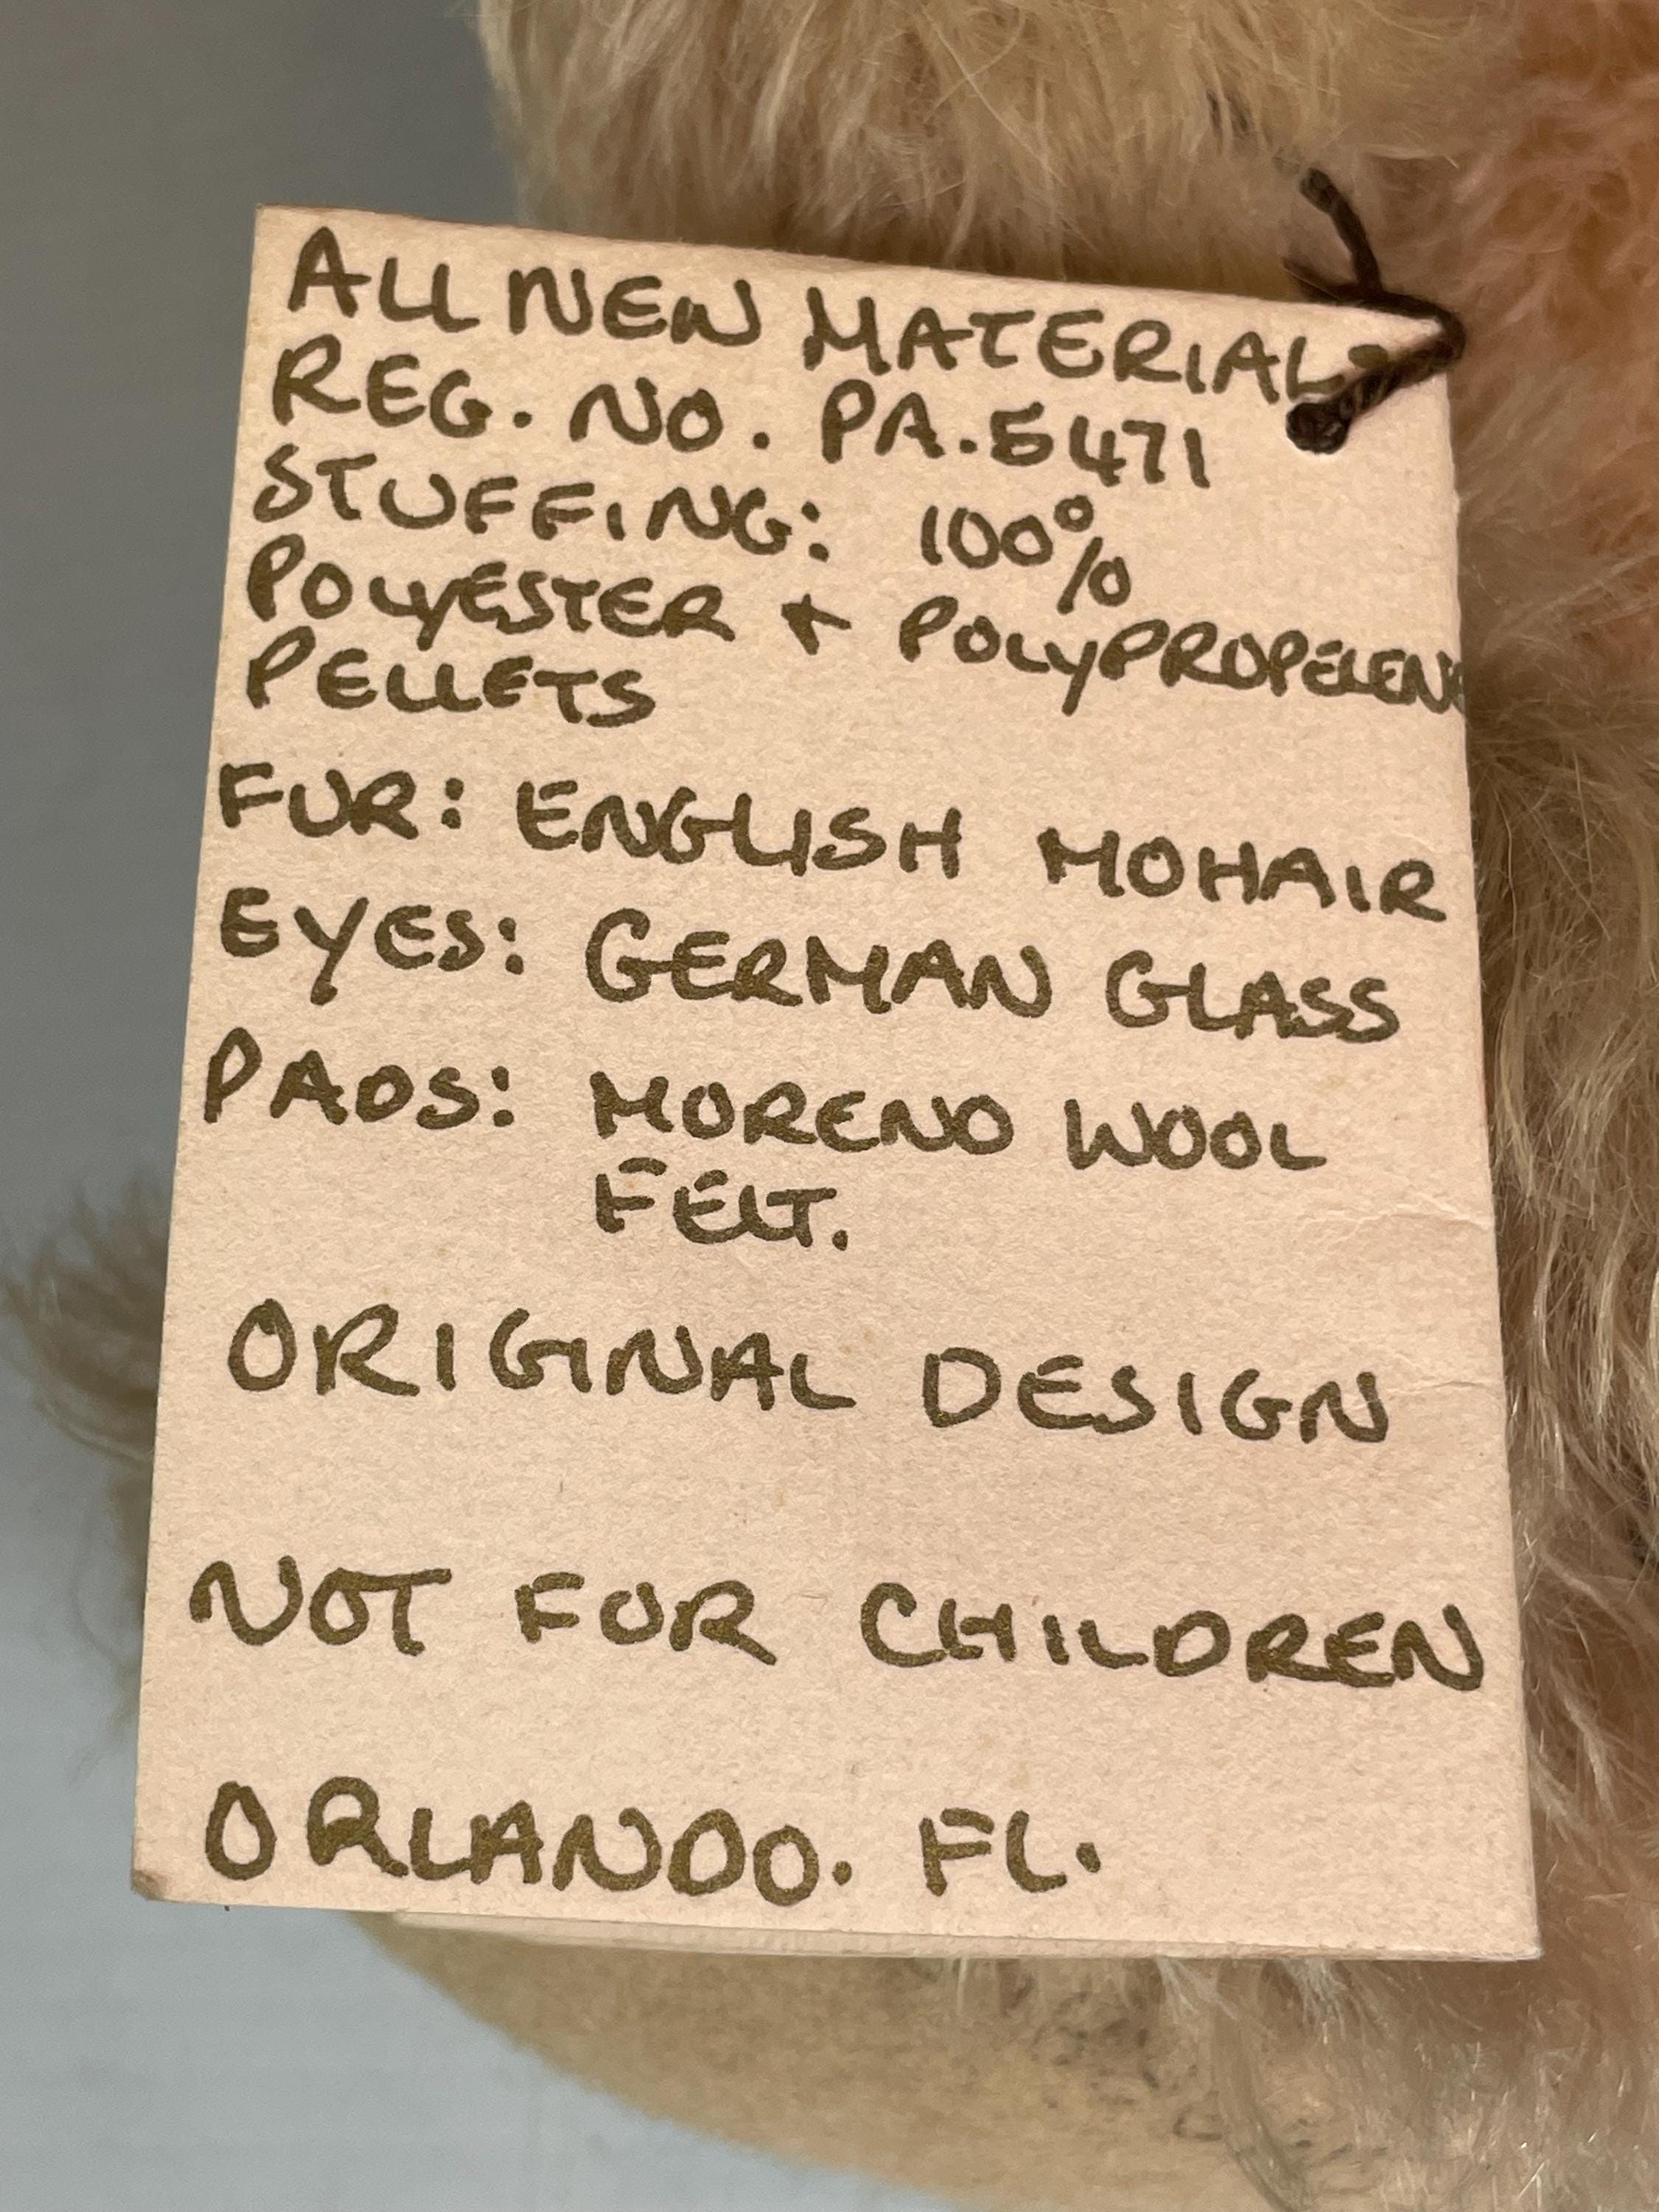 ALL NEW MATERIALS
REG. NO. PA.5471
STUFFING: 100%
POLYESTER + POLYPROPELENE
PELLETS
FUR: ENGLISH MOHAIR
EYES: GERMAN GLASS
PADS: MORENO WOOL
FELT.
ORIGINAL DESIGN
NOT FOR CHILDREN
ORLANDO. FL.